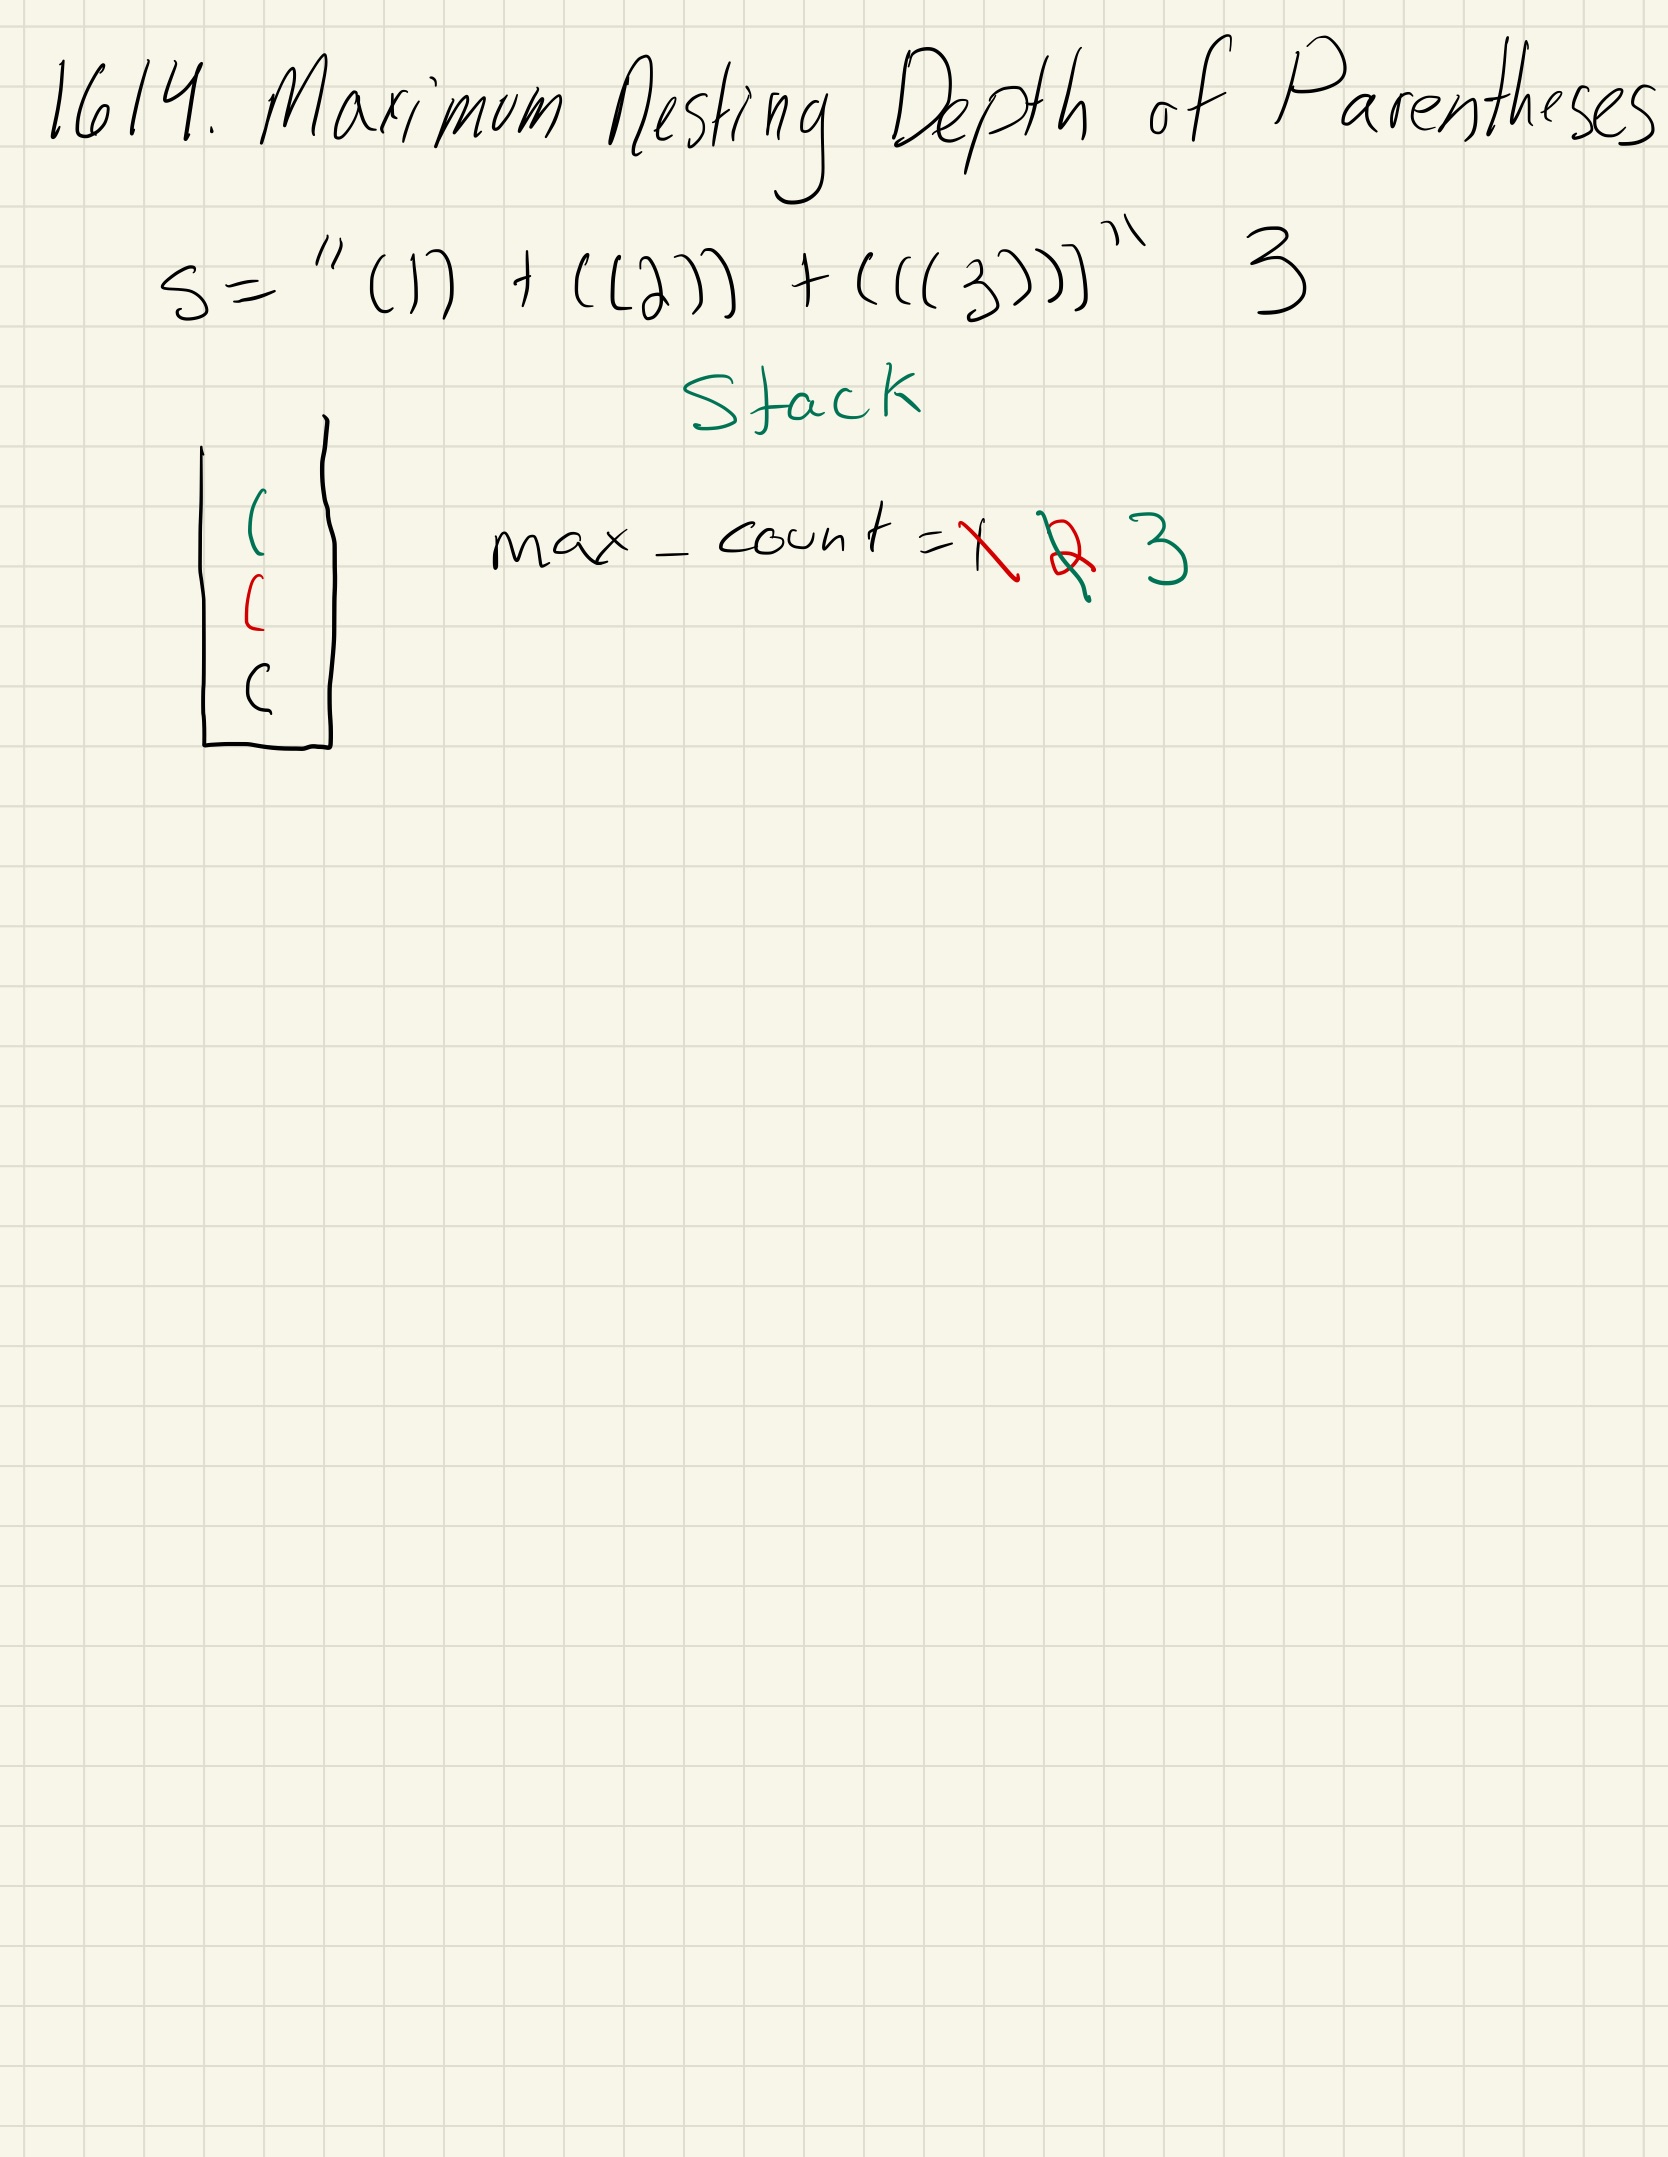 1614. Maximum Nesting Depth of Parentheses
s= "(1) + ((2)) + (((3)))" 3
Stack
(
max_count = 1 2 3
(
(